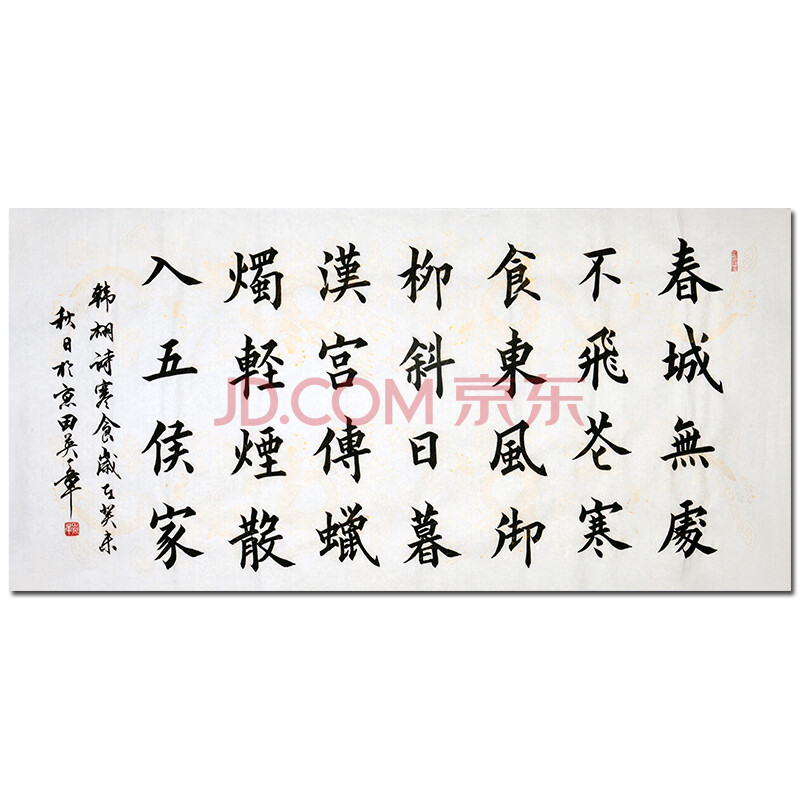 春城無處
不飛花寒
食東風御
柳斜日暮
漢宮傳蠟
燭輕煙散
入五侯家
韩翃詩寒食歲在癸未
秋日於京田英章
JD.COM 京东